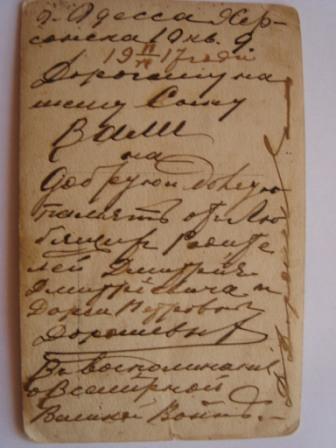 г. Одесса Хер-
сонска 10 кв. 9.
1917 года
Дорогому на
шему Сыну
Вали
на
Добрую долгую
память от Лю
бящих Родите
лей Дмитрия
Дмитриевича и
Дарии Петровны
Дорошевы
Въ воспоминания
о Всемирной
Великой Войнѣ. —